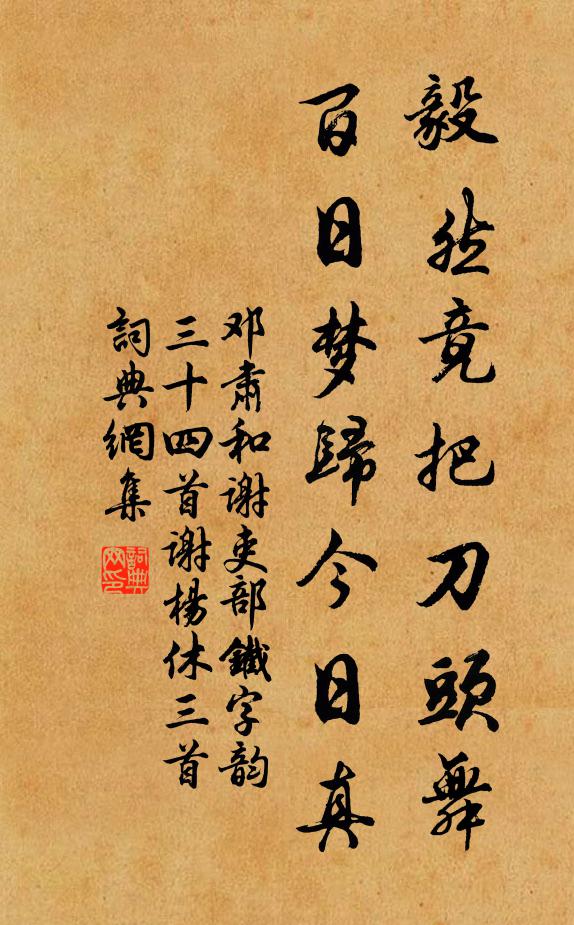 毅然竟把刀頭舞
百日梦歸今日真
邓肅和谢吏部鐵字韵
三十四首谢楊休三首
詞典網集
詞典网印